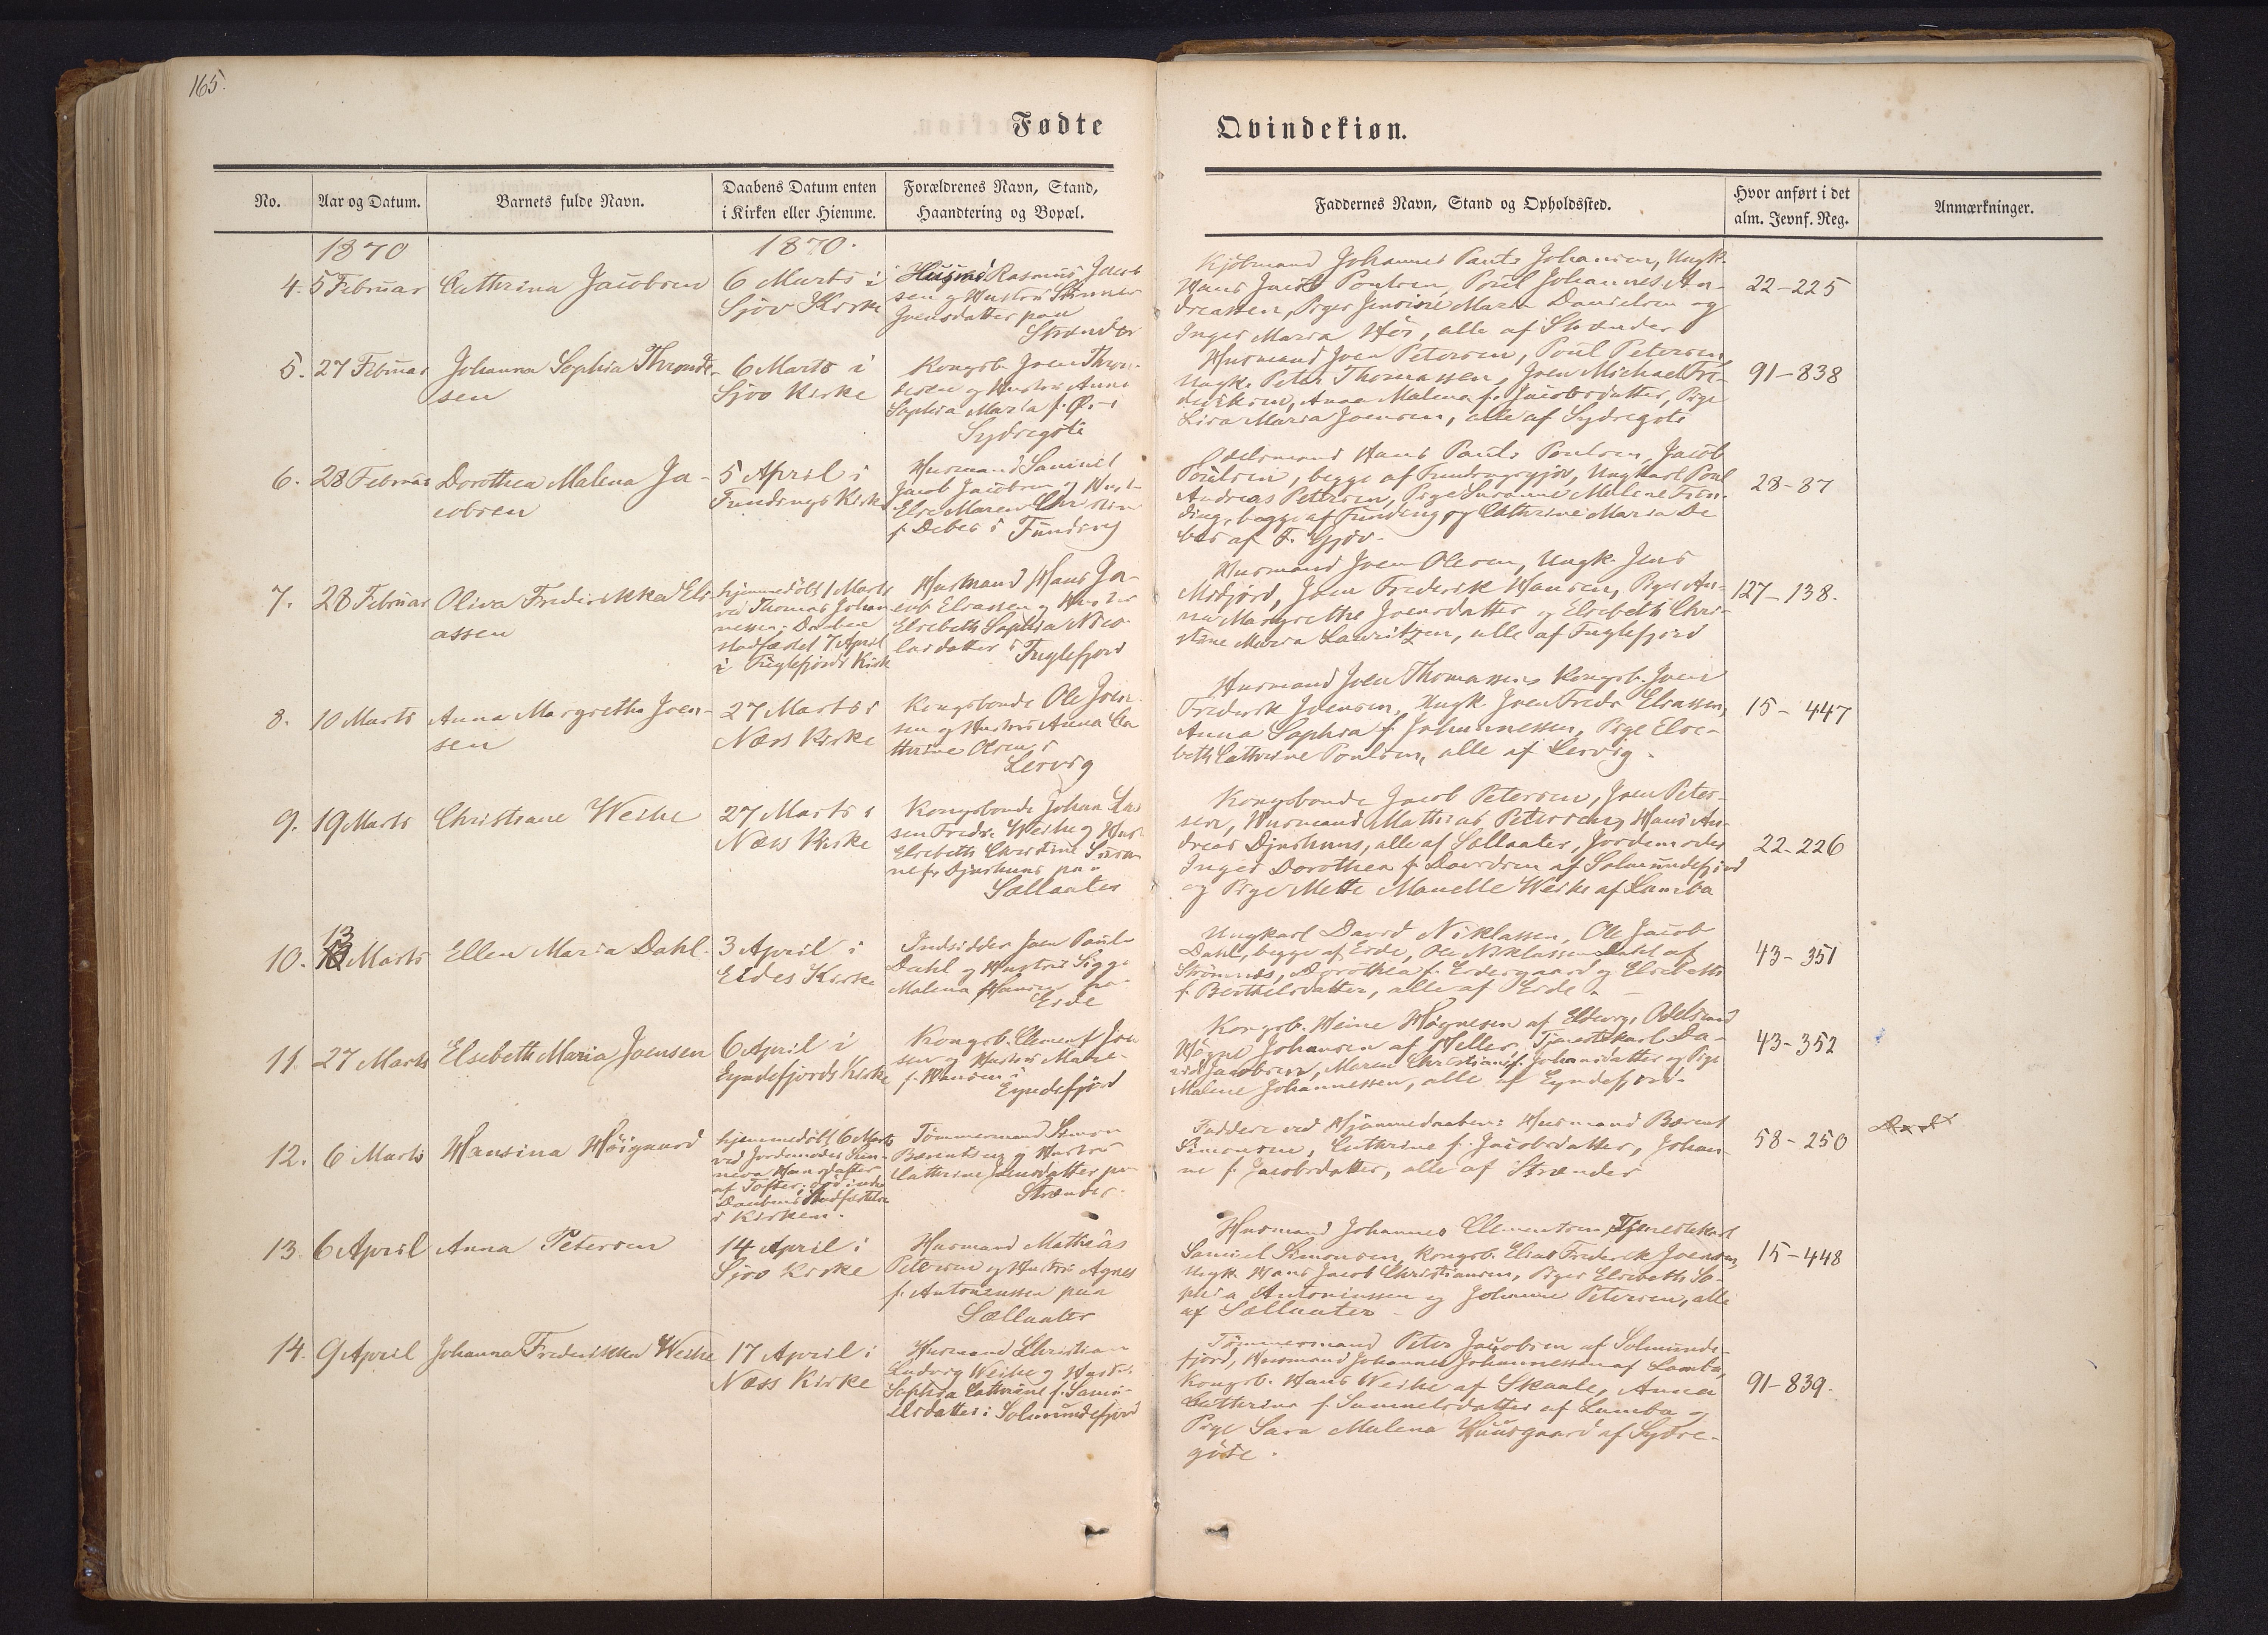 165.
Fødte
Qvindekiøn.
No.
Aar og Datum.
Barnets fulde Navn.
Daabens Datum enten
i Kirken eller Hiemme.
Forældrenes Navn, Stand,
Haandtering og Bopæl.
Faddernes Navn, Stand og Opholdssted.
Hvor anført i det
alm. Jevnf. Reg.
Anmærkninger.
1870
1870.
4. 5 Februar
Cathrina Jacobsen
6 Marts i
Sjov Kirke
Husmd Rasmus Jacob
sen og Hustru
Joensdatter paa
Strænder
Kjøbmand Johannes Pauls Johansen, Ungk.
Hans Jacob Poulsen, Poul Johannes An-
dreassen, Piger Jensine Maria Danielsen og
Inger Maria Høi, alle af Strænder
22-225
5. 27 Februar
Johanna Sophia Thronde-
sen
6 Marts i
Sjov Kirke
Kongsb. Joen Thron-
desen og Hustru Anna
Sophia Maria f.
Sydregøte
Husmand Joen Petersen, Poul Petersen,
Ungk. Peter Thomassen, Joen Michael Fre-
deriksen, Anna Malena f. Jacobsdatter, Pige
Lisa Maria Joensen, alle af Sydregøte
91-838
6. 28 Februar
Dorothea Malena Ja-
cobsen
5 April i
Fundings Kirke
Husmand Samuel
Jacob Jacobsen og Hust.
Else Maren Christine
f. Debes i Funding
Odelsmand Hans Pauls Poulsen, Jacob
Poulsen, begge af Fundingsgjov, Ungkarl Poul
Andreas Petersen, Pige Susanne Malene Fun-
ding, begge af Funding og Cathrine Maria De
bes af F. Gjov.
28-87
7. 28 Februar
Oliva Frederikka Eli
assen
hjemmedøbt 1 Marts
ved Thomas Johan
nessen. Daaben
stadfæstet 7 April
i Fuglefjords Kirke
Husmand Hans Ja-
cob Eliassen og Hustru
Elsebeth Sophia Nico-
lasdatter i Fuglefjord
Husmand Joen Olesen, Ungk. Jens
Midfjord, Joen Frederik Hansen, Piger An-
na Margrethe Joensdatter og Elsebeth Chri-
stine Maria Lauritzen, alle af Fuglefjord
127-138.
8. 10 Marts
Anna Margretha Joen-
sen
27 Marts i
Næs Kirke
Kongsbonde Ole Joen
sen og Hustru Anna Ca
thrine Olsen, i
Lervig
Husmand Joen Thomassen, Kongsb. Joen
Frederik Joensen, Ungk. Joen Fredr. Eliassen,
Anna Sophia f. Johannessen, Pige Else-
beth Cathrine Poulsen, alle af Lervig.
15-447
9. 19 Marts
Christiane Weihe
27 Marts i
Næs Kirke
Kongsbonde Johan
sen Fredr. Weihe og Hust.
Elsebeth Christine Susan
ne f. Djurhuus paa
Sællaater
Kongsbonde Jacob Petersen, Joen Peter-
sen, Husmand Mathias Petersen, Hans An-
dreas Djurhuus, alle af Sællaater, Jordemoder
Inger Dorothea f. Davidsen af Solmundefjord
og Pige Mette Manelle Weihe af Lamba
22-226
10. 13 Marts
Ellen Maria Dahl.
3 April i
Eides Kirke
Indsidder Joen Pauls
Dahl og Hustru Sigge
Malena Hansen paa
Eide
Ungkarl David Niklassen, Ole Jacob
Dahl, begge af Eide, Ole Niklassen Dahl af
Strømnæs, Dorothea f. Eidesgaard og Elsebeth
f. Berthelsdatter, alle af Eide.
43-351
11. 27 Marts
Elsebeth Maria Joensen
6 April i
Eyndefjords Kirke
Kongsb. Clement Joen
sen og Hustru Mare-
f. Hansen i
Eyndefjord
Kongsb. Heine Høgnesen af Eldevig, Odelsmd
Høgne Johansen af Heller, Tjenestekarl Da-
vid Jacobsen, Maren Christiane f. Johansdatter og Pige
Malene Johannessen, alle af Eyndefjord.
43-352
12. 6 Marts
Hansina Høigaard
hjemmedøbt 6 Marts
ved Jordemoder Sun-
neva Hansdatter
af Tofter; død inden
Daabens Stadfæstelse
i Kirken.
Tømmermand Simon
Bærentsen og Hustru
Cathrine Joensdatter paa
Strænder.
Faddere ved Hjemmedaaben: Husmand Bærent
Simonsen, Cathrine f. Jacobsdatter, Johan-
ne f. Jacobsdatter, alle af Strænder
58-250
13. 6 April
Anna Petersen
14 April i
Sjov Kirke
Husmand Mathias
Petersen og Hustru Agnes
f. Antoniussen paa
Sællaater
Husmand Johannes Clementsen, Tjenestekarl
Samuel Simonsen, Kongsb. Elias Frederik Joensen,
Ungk. Hans Jacob Christiansen, Piger Elsebeth So-
phia Antoniussen og Johanne Petersen, alle
af Sællaater.
15-448
14. 9 April
Johanna Frederikka Weihe
17 April i
Næss Kirke
Husmand Christian
Ludvig Weihe og Hustru
Sophia Cathrine f. Samu-
elsdatter i Solmundefjord
Tømmermand Peter Jacobsen af Solmunde-
fjord, Husmand Johannes Johannessen af Lamba,
Kongsb. Hans Weihe af Skaale, Anna
Cathrine f. Samuelsdatter af Lamba og
Pige Sara Malena Huusgaard af Sydre-
gøte.
91-839.